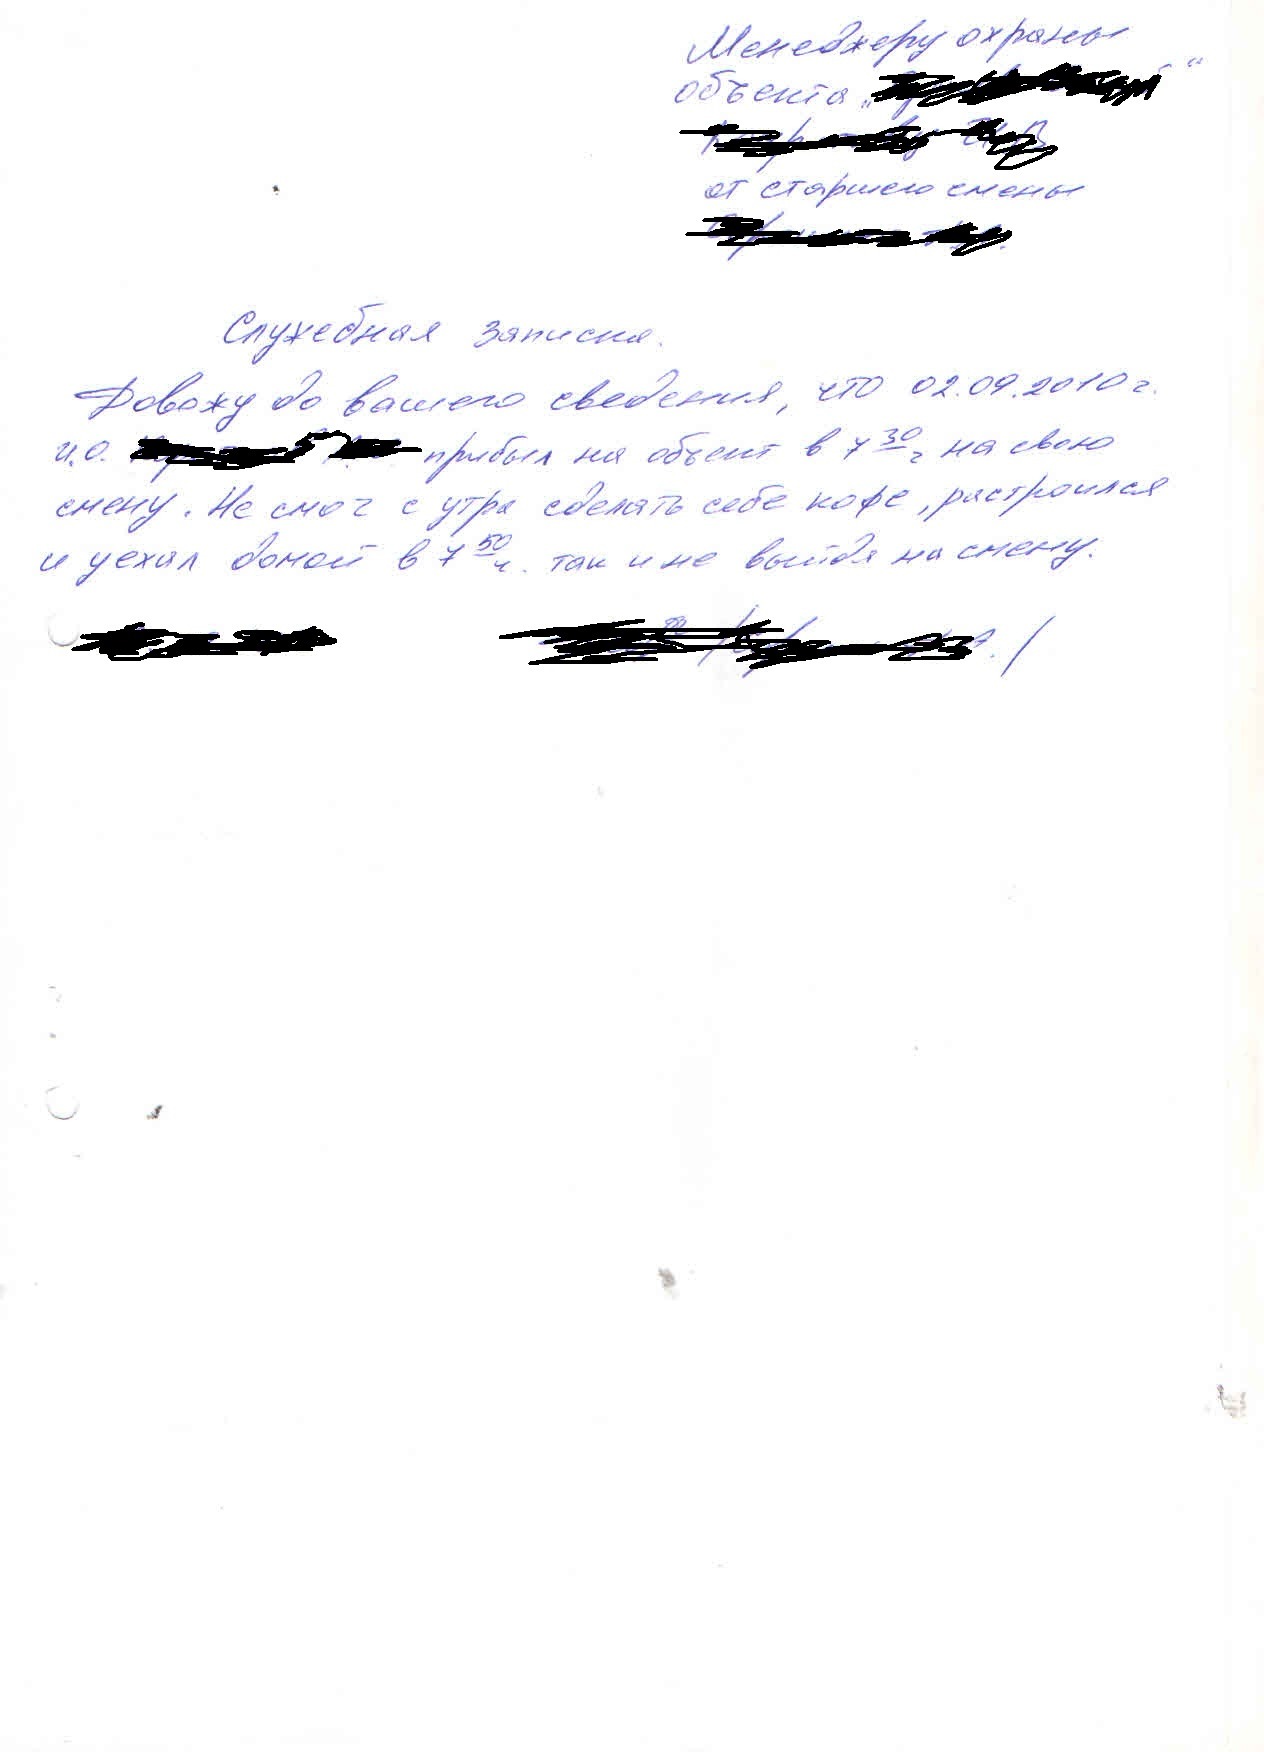 Менеджеру охраны
объекта „ “
от старшего смены
Служебная записка.
Довожу до вашего сведения, что 02.09.2010 г.
и.о. прибыл на объект в 7 30 ч на свою
смену. Не смог с утра сделать себе кофе, растроился
и уехал домой в 7 50 ч. так и не выйдя на смену.